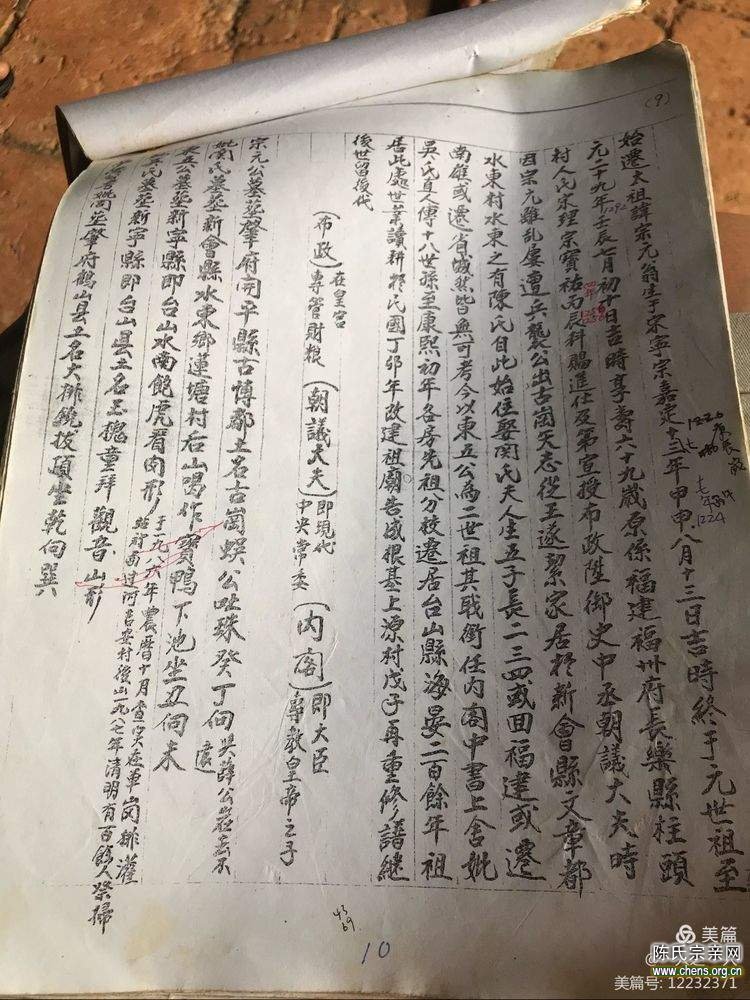 (9)
始遷太祖諱宗元翁生于宋寧宗嘉定十三年甲申八月十三日吉時終于元世祖至
元二十九年壬辰七月初十日吉時享壽六十九歲原係福建福州府長樂縣柱頭
村人氏宋理宗寶祐丙辰科賜進仕及第宣授布政陞御史中丞朝議大夫時
因宗元雖乱屡遭兵襲公出古崗矢志從王遂挈家居於新會縣文章都
水東村水東之有陳氏自此始住娶関氏夫人生五子長二三四或囬福建或遷
南雄或遷省城然皆無可考今以東五公為二世祖其戢銜任内閣中書上舍妣
吳氏宜人傳十八世孫至康熙初年各房先祖分枝遷居台山縣海晏二百餘年祖
居此處世業讀耕於民國丁卯年改建祖廟告成根基上源村戊子再重修譜継
後世留後代
(布政) 在皇宮專管財粮 (朝議大夫) 即現代中央常委 (内閣) 即大臣專教皇帝之子
宗元公墓葬肇府開平縣古博都土名古崗蜈公吐珠癸丁向
妣関氏墓葬新會縣水東鄉蓮塘村后山喝作寶鴨下池坐丑向未
東五公墓葬新寧縣即台山水南飽虎眉肉形
于一九八六年農曆十月查实在軍岗排灌
站对面过河吉安村後山一九八七年清明有百餘人祭掃
氏墓葬新寧縣即台山县土名玉槐童拜觀音山形
妣関葬肇府鶴山县土名大排繞技頭坐乾向巽
1292
1220
1224
43
69
10
美篇
陈氏宗亲网
www.chens.org.cn
美篇号: 12232371